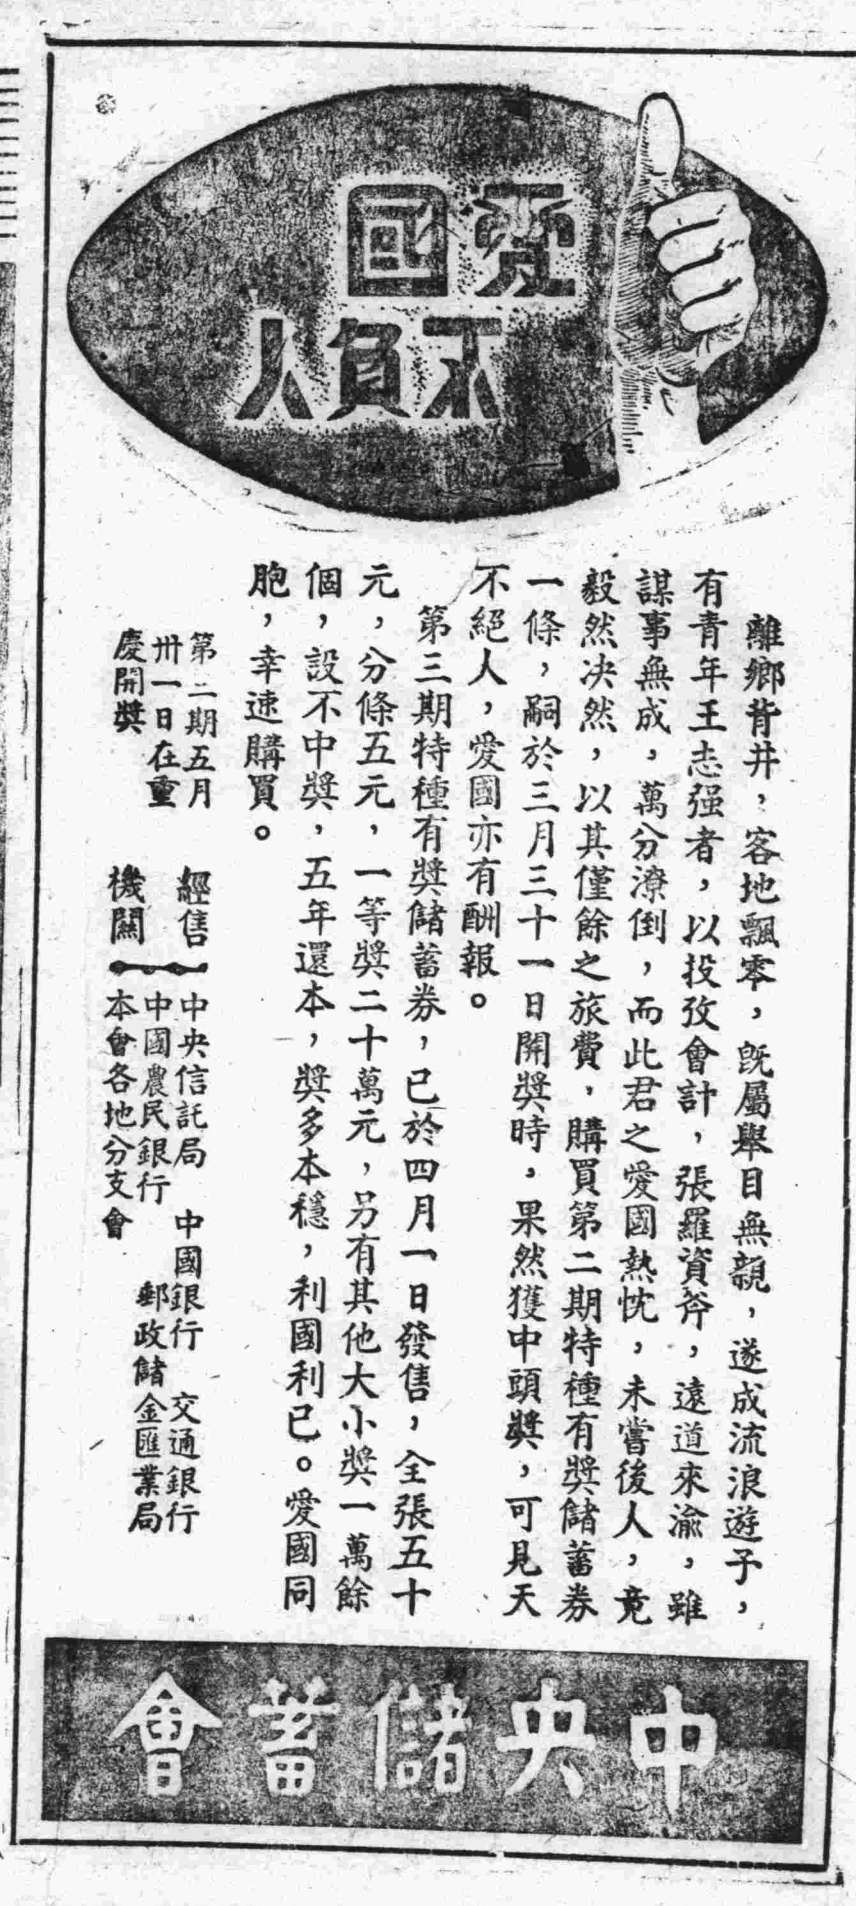 愛國
不負人
離鄉背井，客地飄零，既屬舉目無親，遂成流浪遊子，
有青年王志强者，以投攷會計，張羅資斧，遠道來渝，雖
謀事無成，萬分潦倒，而此君之愛國熱忱，未嘗後人，竟
毅然决然，以其僅餘之旅費，購買第二期特種有獎儲蓄券
一條，嗣於三月三十一日開獎時，果然獲中頭獎，可見天
不絕人，愛國亦有酬報。
第三期特種有獎儲蓄券，已於四月一日發售，全張五十
元，分條五元，一等獎二十萬元，另有其他大小獎一萬餘
個，設不中獎，五年還本，獎多本穩，利國利己。愛國同
胞，幸速購買。
第二期五月
卅一日在重
慶開獎
經售
機關
中央信託局　中國銀行　交通銀行
中國農民銀行　郵政儲金匯業局
本會各地分支會
中央儲蓄會